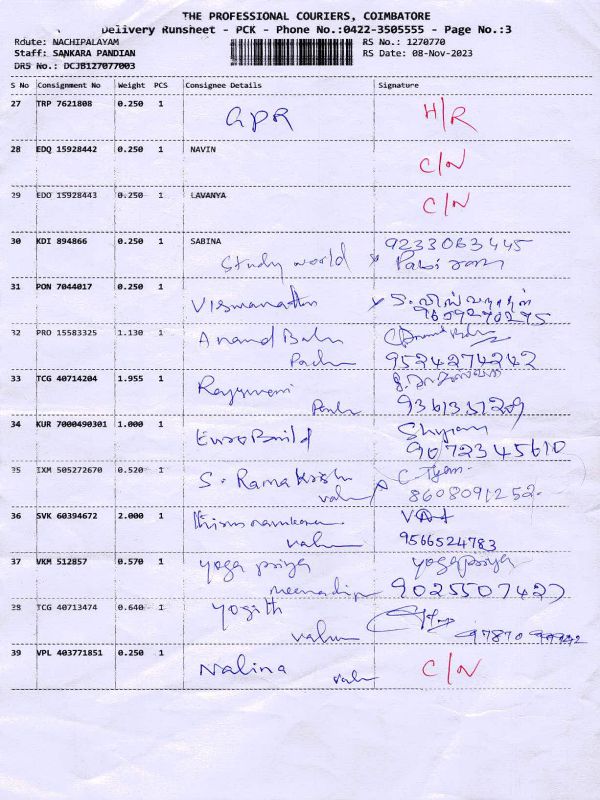 THE PROFESSIONAL COURIERS, COIMBATORE
Delivery Runsheet - PCK - Phone No.:0422-3505555 - Page No.:3
Route: NACHIPALAYAM RS No.: 1270770
Staff: SANKARA PANDIAN RS Date: 08-Nov-2023
DRS No.: DCJB127077003
S No Consignment No Weight PCS Consignee Details Signature
27 TRP 7621808 0.250 1 GPR H/R
28 EDQ 15928442 0.250 1 NAVIN C/N
29 EDO 15928443 0.250 1 LAVANYA C/N
30 KDI 894866 0.250 1 SABINA 9233063445
Study world
31 PON 7044017 0.250 1 Viswanathan
32 PRO 15583325 1.130 1 Anand Babu
9524274242
33 TCG 40714204 1.955 1
34 KUR 7000490301 1.000 1 Euro Build Shyam
9072345610
35 IXM 505272670 0.520 1 S. Rama Krish
8608091252
36 SVK 60394672 2.000 1
9566524783
37 VKM 512857 0.570 1 yoga priya yogapriya
9025507427
38 TCG 40713474 0.640 1 yogith
39 VPL 403771851 0.250 1 Nalina C/N